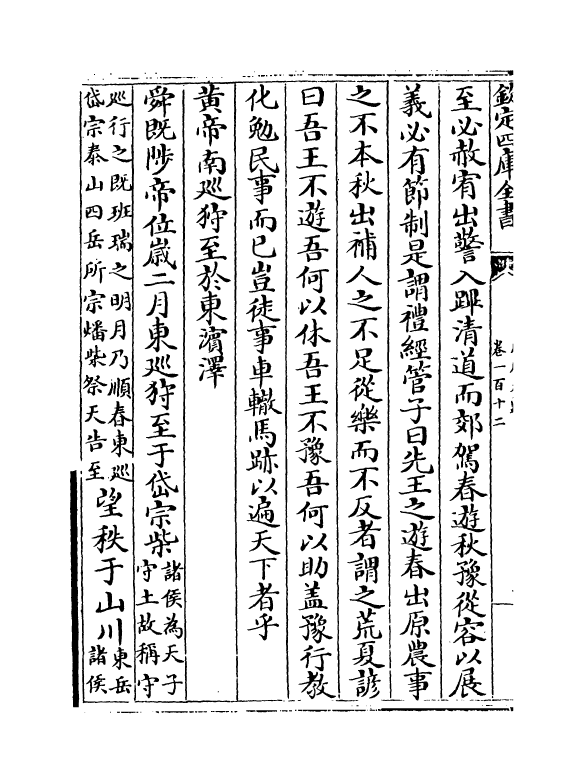 欽定四庫全書
卷一百十二
至必赦宥出警入蹕清道而郊駕春遊秋豫從容以展
義必有節制是謂禮經管子曰先王之遊春出原農事
之不本秋出補人之不足從樂而不反者謂之荒夏諺
曰吾王不遊吾何以休吾王不豫吾何以助盖豫行教
化勉民事而已豈徒事車轍馬跡以遍天下者乎
黄帝南廵狩至於東濵澤
舜既陟帝位嵗二月東廵狩至于岱宗柴諸侯為天子守土故稱守
廵行之既班瑞之明月乃順春東廵岱宗泰山四岳所宗燔柴祭天告至望秩于山川東岳諸侯